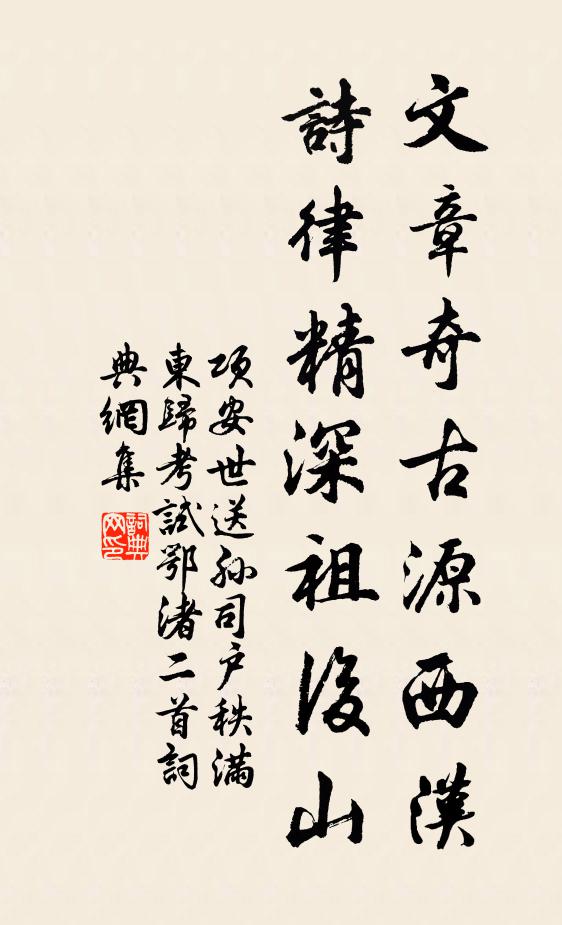 文章奇古源西漢
詩律精深祖後山
項安世送孫司戶秩滿
東歸考試鄂渚二首詞
典網集
詞典網印